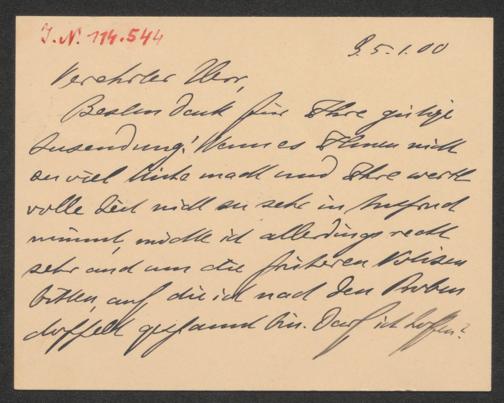 J.N. 114.544
5.1.00
Verehrter Herr,
Besten Dank für Ihre gütige
Zusendung! Wenn es Ihnen nicht
zu viel Mühe macht und Ihre werth
volle Zeit nicht zu sehr in Anspruch
nimmt, möchte ich allerdings recht
sehr auch um die früheren Notizen
bitten, auf die ich nach den Proben
doppelt gespannt bin. Darf ich hoffen?